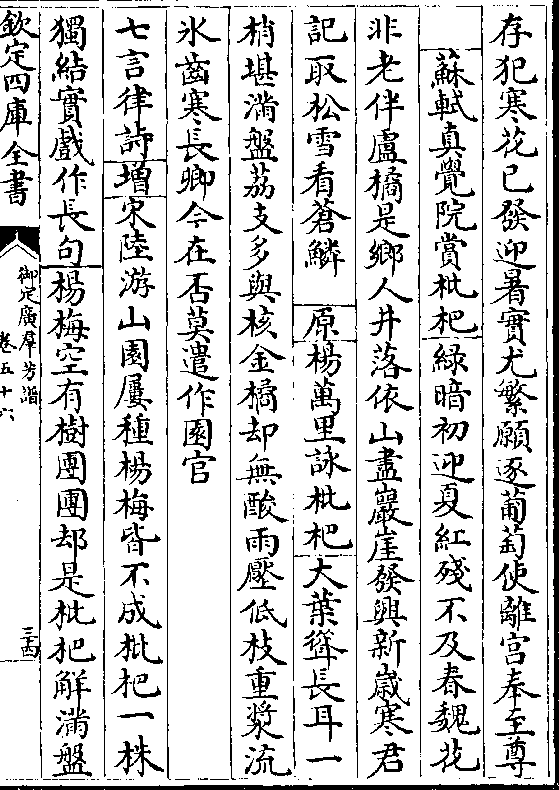 存犯寒花已發迎暑實尤繁願逐葡萄使離宮奉至尊
蘇軾真覺院賞枇杷綠暗初迎夏紅殘不及春魏花
非老伴盧橘是鄉人井落依山盡巖崖發興新歲寒君
記取松雪看蒼鱗　原楊萬里詠枇杷大葉聳長耳一
梢堪滿盤荔支多與核金橘却無酸雨壓低枝重漿流
氷齒寒長卿今在否莫遣作園官
七言律詩增宋陸游山園屢種楊梅皆不成枇杷一株
獨結實戲作長句楊梅空有樹團團却是枇杷解滿盤
欽定四庫全書
御定廣群芳譜
卷五十六
三十四